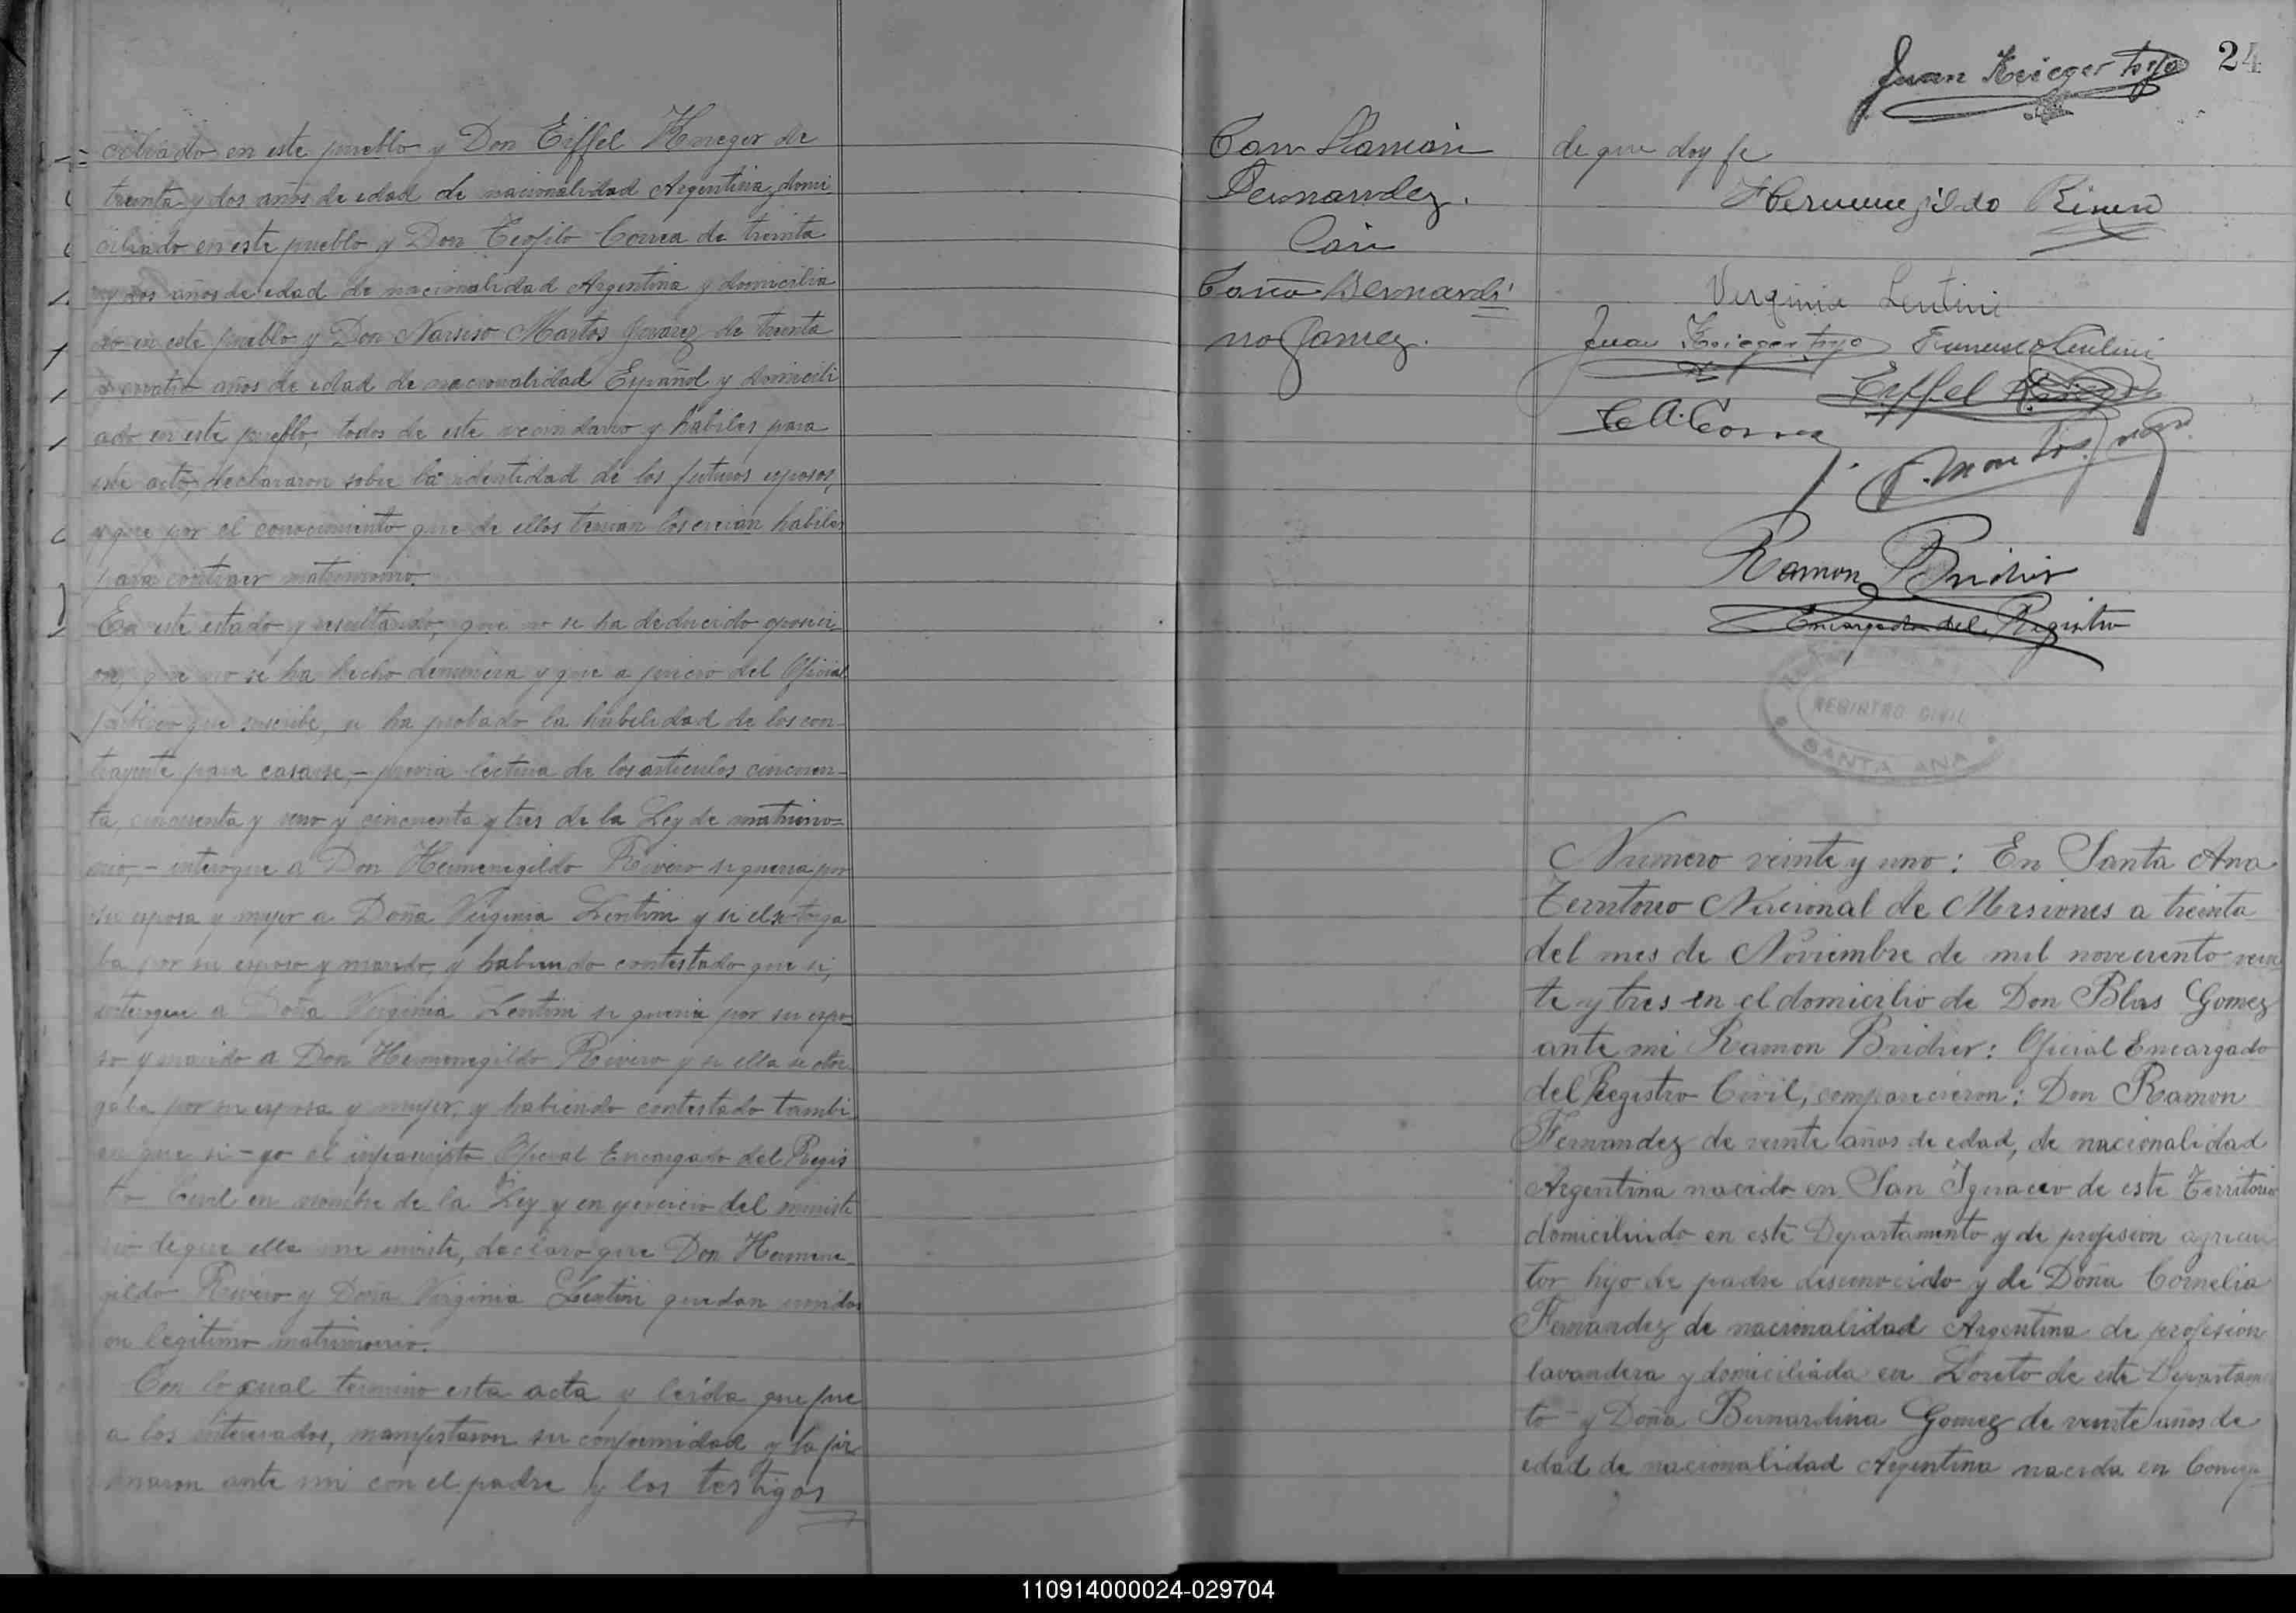 ciliado en este pueblo y Don Eiffel Krieger de
treinta y dos años de edad de nacionalidad Argentina, domi
ciliado en este pueblo y Don Teofilo Correa de treinta
y dos años de edad de nacionalidad Argentina y domicilia
do en este pueblo y Don Narsiso Martos Juarez de treinta
y cuatro años de edad de nacionalidad Español y domicili
ado en este pueblo, todos de este vecindario y habiles para
este acto, declararon sobre la identidad de los futuros esposos,
y que por el conocimiento que de ellos tenian los creian habiles
para contraer matrimonio.
En este estado y resultando, que no se ha deducido oposici
on, que no se ha hecho denuncia y que a juicio del Oficial
publico que suscribe, se ha probado la habilidad de los con-
trayente para casarse, - previa lectura de los articulos cincuen-
ta, cincuenta y uno y cincuenta y tres de la Ley de matrimo=
nio, - interogue a Don Hermenegildo Rivero si queria por
su esposa y mujer a Doña Virginia Lentini y si el se otorga
ba por su esposo y marido, y habiendo contestado que si,
interogue a Doña Virginia Lentini si queria por su espo=
so y marido a Don Hermenegildo Rivero y si ella se otor
gaba por su esposa y mujer, y habiendo contestado tambi
en que si - yo el infrascripto Oficial Encargado del Regis
tro Civil en nombre de la Ley y en ejercicio del ministe
rio de que ella me inviste, declaro que Don Hermene
gildo Rivero y Doña Virginia Lentini quedan unidos
en legitimo matrimonio.
Con lo cual termino esta acta y leida que fue
a los interesados, manifestaron su conformidad y la fir
maron ante mi con el padre y los testigos
24
Juan Krieger hijo
de que doy fe
Hermenegildo Rivero
Virginia Lentini
Juan Krieger hijo Francisco Lentini
Eiffel Krieger
T A. Correa
Ramon Bridier
Encargado del Registro
REGISTRO CIVIL
SANTA ANA
Con Ramon
Fernandez.
Con
Doña Bernardi
na Gomez.
Numero veinte y uno: En Santa Ana
Territorio Nacional de Misiones a treinta
del mes de Noviembre de mil noveciento vein
te y tres en el domicilio de Don Blas Gomez
ante mi Ramon Bridier: Oficial Encargado
del Registro Civil, comparecieron: Don Ramon
Fernandez de veinte años de edad, de nacionalidad
Argentina nacido en San Ignacio de este Territorio
domiciliado en este Departamento y de profesion agricul
tor hijo de padre desconocido y de Doña Cornelia
Fernandez de nacionalidad Argentina de profesion
lavandera y domiciliada en Loreto de este Departamen
to - y Doña Bernardina Gomez de veinte años de
edad de nacionalidad Argentina nacida en
110914000024-029704